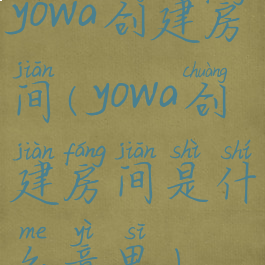 yowa创建房
jiān
间(yowa创
chuàng
jiàn fáng jiān shì shí
建房间是什
me yì sī
么意思)